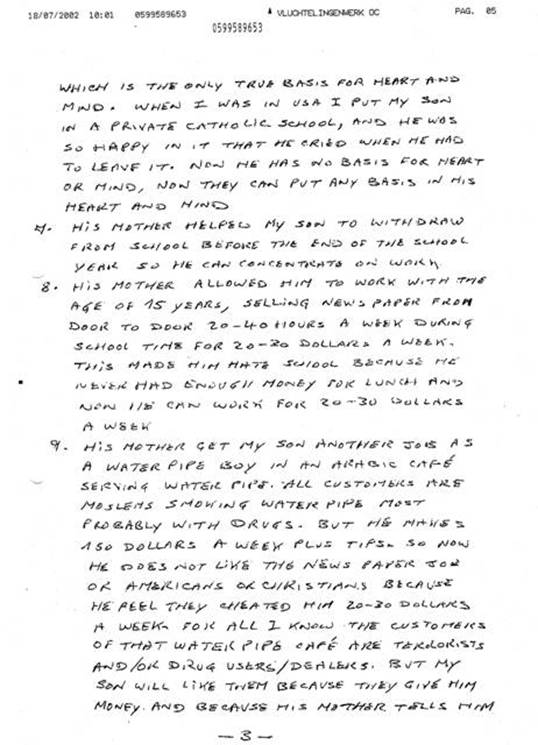 18/07/2002 10:01 0599589653 VLUCHTELINGENWERK OC PAG. 05
0599589653
WHICH IS THE ONLY TRUE BASIS FOR HEART AND
MIND. WHEN I WAS IN USA I PUT MY SON
IN A PRIVATE CATHOLIC SCHOOL, AND HE WAS
SO HAPPY IN IT THAT HE CRIED WHEN HE HAD
TO LEAVE IT. NOW HE HAS NO BASIS FOR HEART
OR MIND, NOW THEY CAN PUT ANY BASIS IN HIS
HEART AND MIND
7. HIS MOTHER HELPED MY SON TO WITHDRAW
FROM SCHOOL BEFORE THE END OF THE SCHOOL
YEAR SO HE CAN CONCENTRATE ON WORK.
8. HIS MOTHER ALLOWED HIM TO WORK WITH THE
AGE OF 15 YEARS, SELLING NEWS PAPER FROM
DOOR TO DOOR 20-40 HOURS A WEEK DURING
SCHOOL TIME FOR 20-30 DOLLARS A WEEK.
THIS MADE HIM HATE SCHOOL BECAUSE HE
NEVER HAD ENOUGH MONEY FOR LUNCH AND
NOW HE CAN WORK FOR 20-30 DOLLARS
A WEEK
9. HIS MOTHER GET MY SON ANOTHER JOB AS
A WATER PIPE BOY IN AN ARABIC CAFÉ
SERVING WATER PIPE. ALL CUSTOMERS ARE
MOSLEMS SMOKING WATER PIPE MOST
PROBABLY WITH DRUGS. BUT HE MAKES
150 DOLLARS A WEEK PLUS TIPS. SO NOW
HE DOES NOT LIKE THE NEWS PAPER JOB
OR AMERICANS OR CHRISTIANS BECAUSE
HE FEEL THEY CHEATED HIM 20-30 DOLLARS
A WEEK. FOR ALL I KNOW THE CUSTOMERS
OF THAT WATER PIPE CAFÉ ARE TERRORISTS
AND/OR DRUG USERS/DEALERS. BUT MY
SON WILL LIKE THEM BECAUSE THEY GIVE HIM
MONEY. AND BECAUSE HIS MOTHER TELLS HIM
-3-